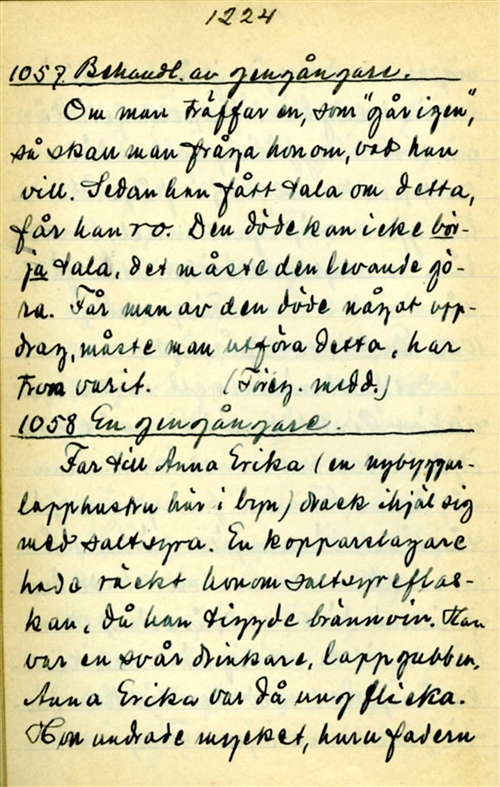 1224
1057 Behandl. av gengångare.
Om man träffar en, som "går igen",
så skall man fråga honom, vad han
vill. Sedan han fått tala om detta,
får han ro. Den döde kan icke bör-
ja tala, det måste den levande gö-
ra. Får man av den döde något upp-
drag, måste man utföra detta, har
tron varit. (Föreg. medd.)
1058 En gengångare.
Far till Anna Erika (en nybyggar-
lapphustru här i byn) drack ihjäl sig
med saltsyra. En kopparslagare
hade räckt honom saltsyreflas-
kan, då han tiggde brännvin. Han
var en svår drinkare, lappgubben.
Anna Erika var då ung flicka.
Hon undrade mycket, huru fadern